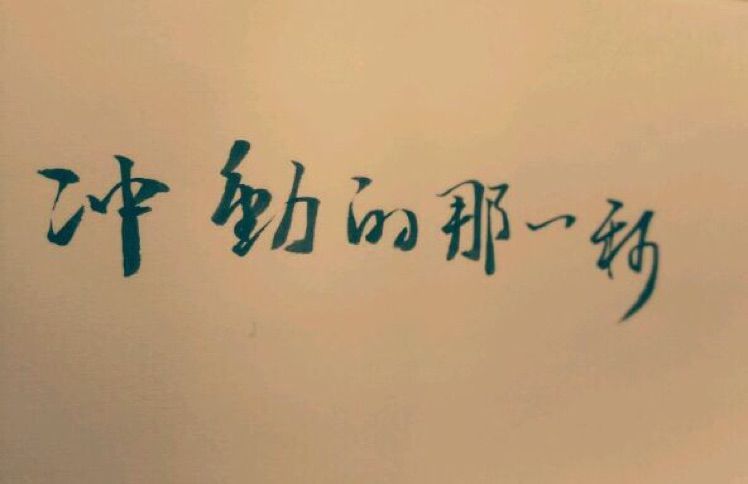 冲動的那一秒